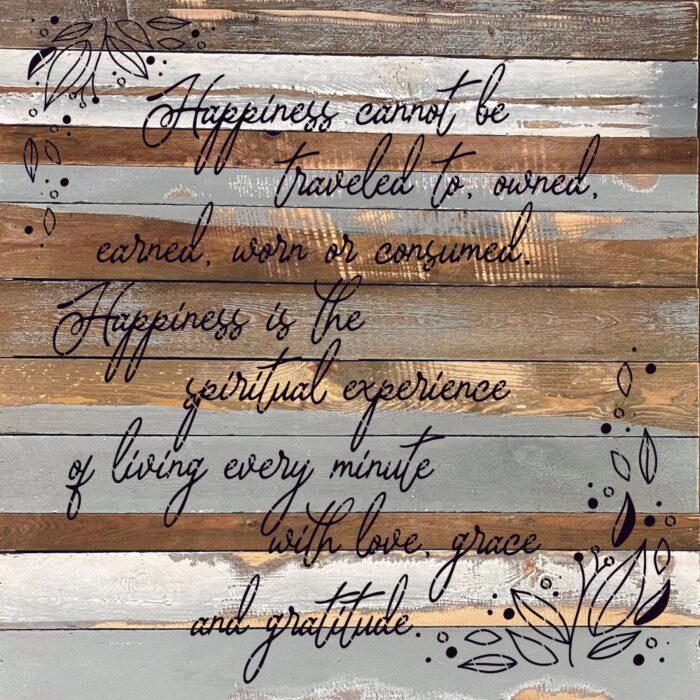 Happiness cannot be
traveled to, owned,
earned, worn or consumed.
Happiness is the
spiritual experience
of living every minute
with love, grace
and gratitude.